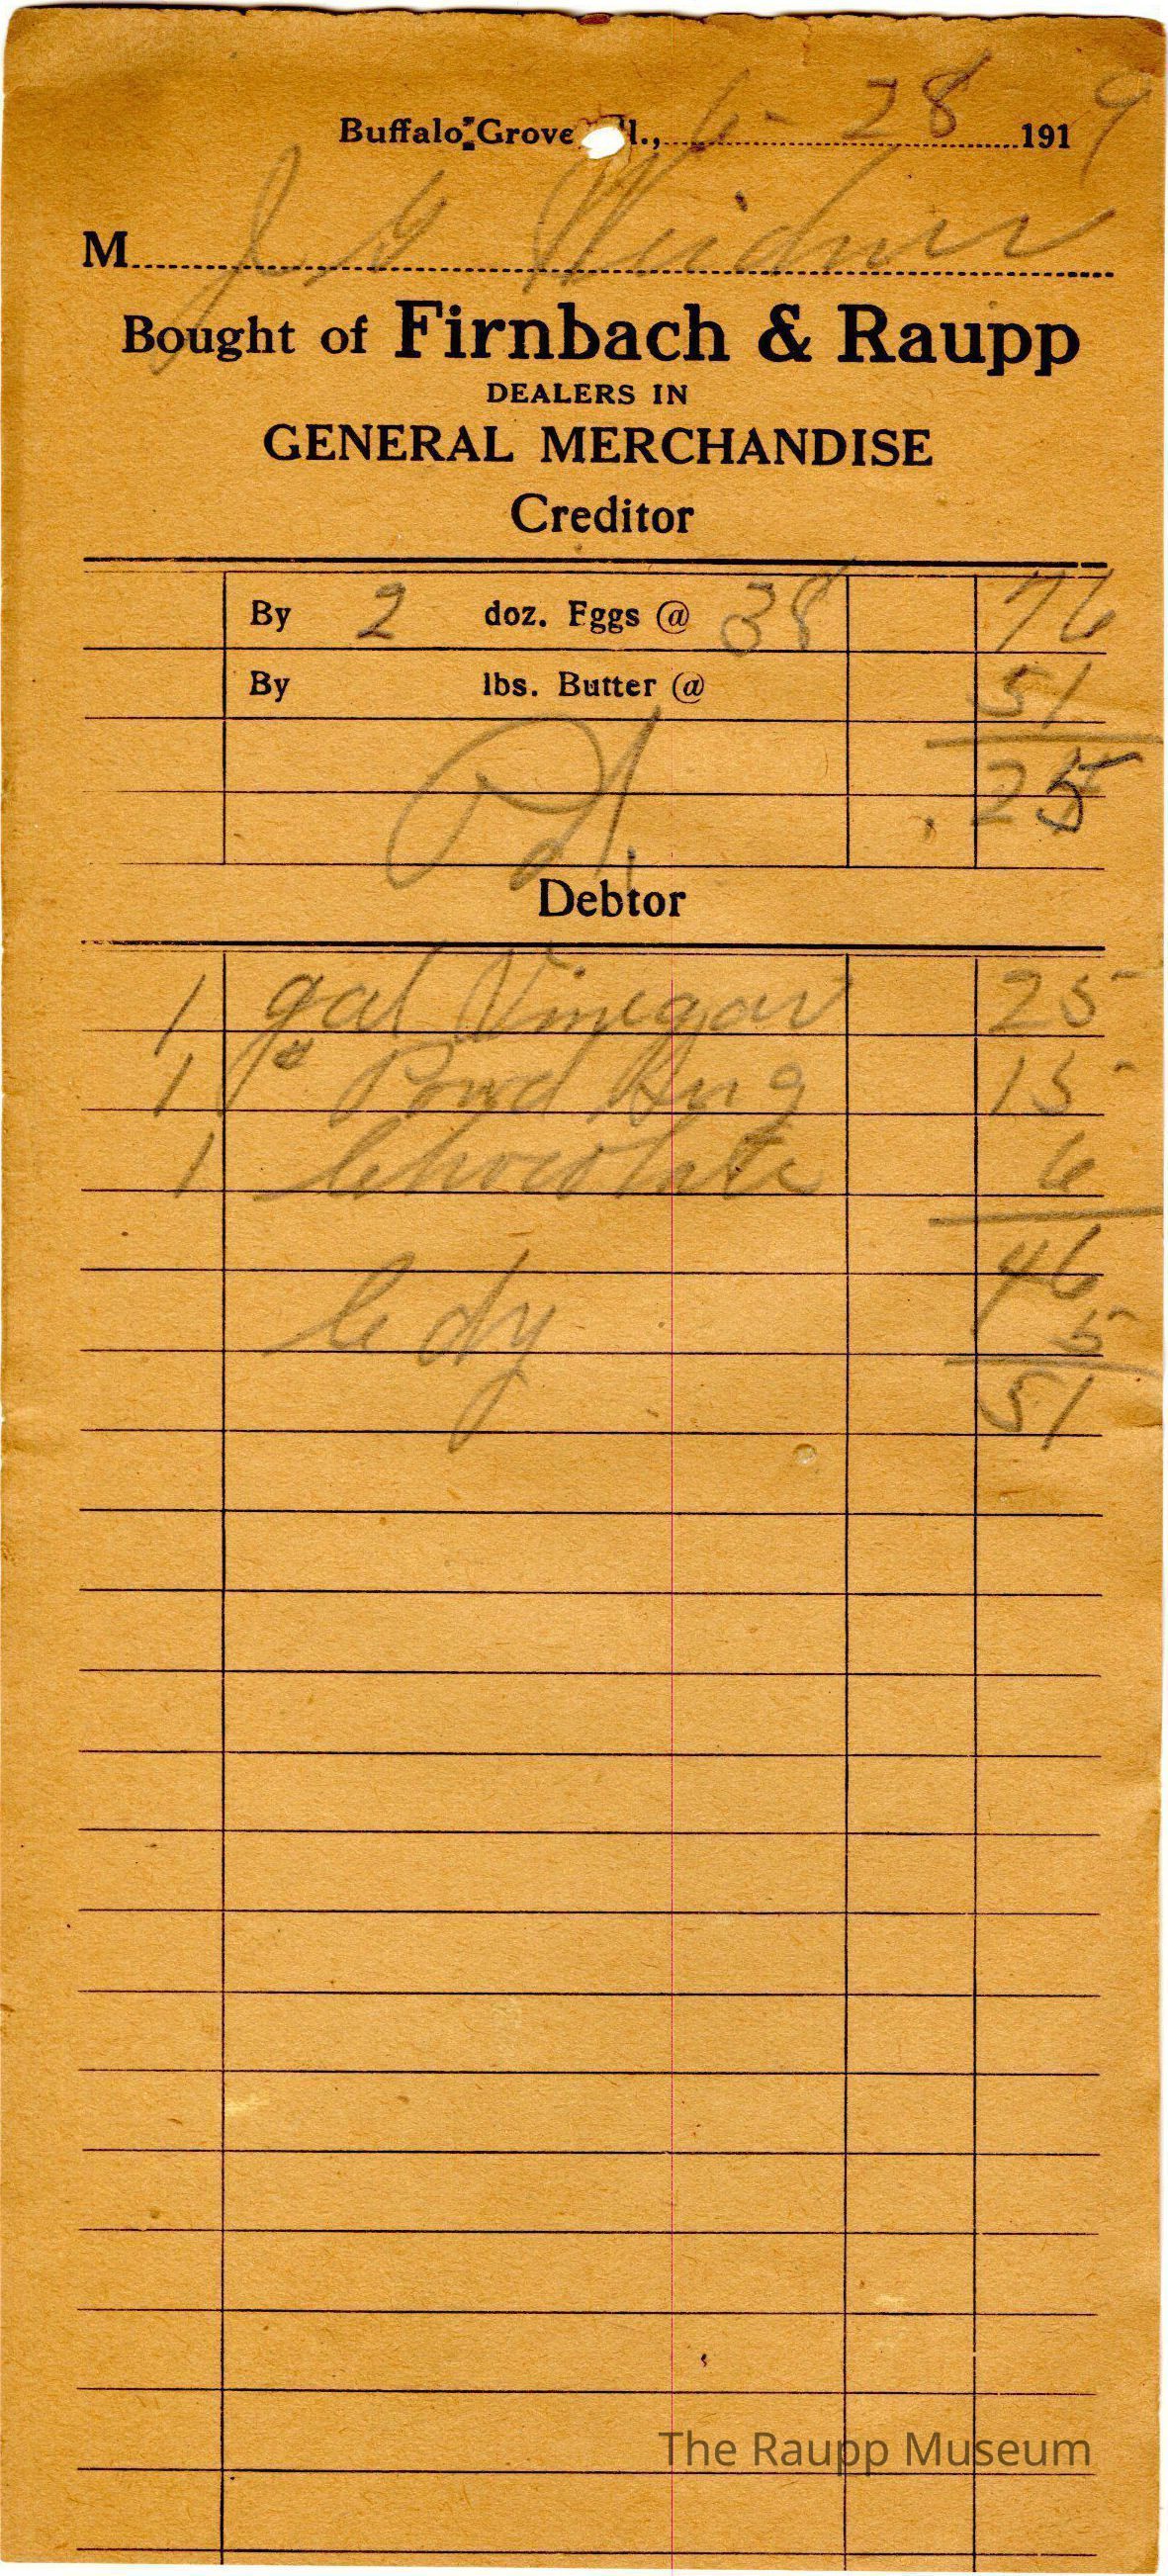 Buffalo Grove Ill., 6-28 1919
M J G Weidner
Bought of Firnbach & Raupp
DEALERS IN
GENERAL MERCHANDISE
Creditor
By 2 doz. Eggs @ 38 76
By lbs. Butter @ 51
25
Pd.
Debtor
1 gal Vinegar 25
1 Powd 15
1 Chocolate 6
46
Cdy 5
51
The Raupp Museum